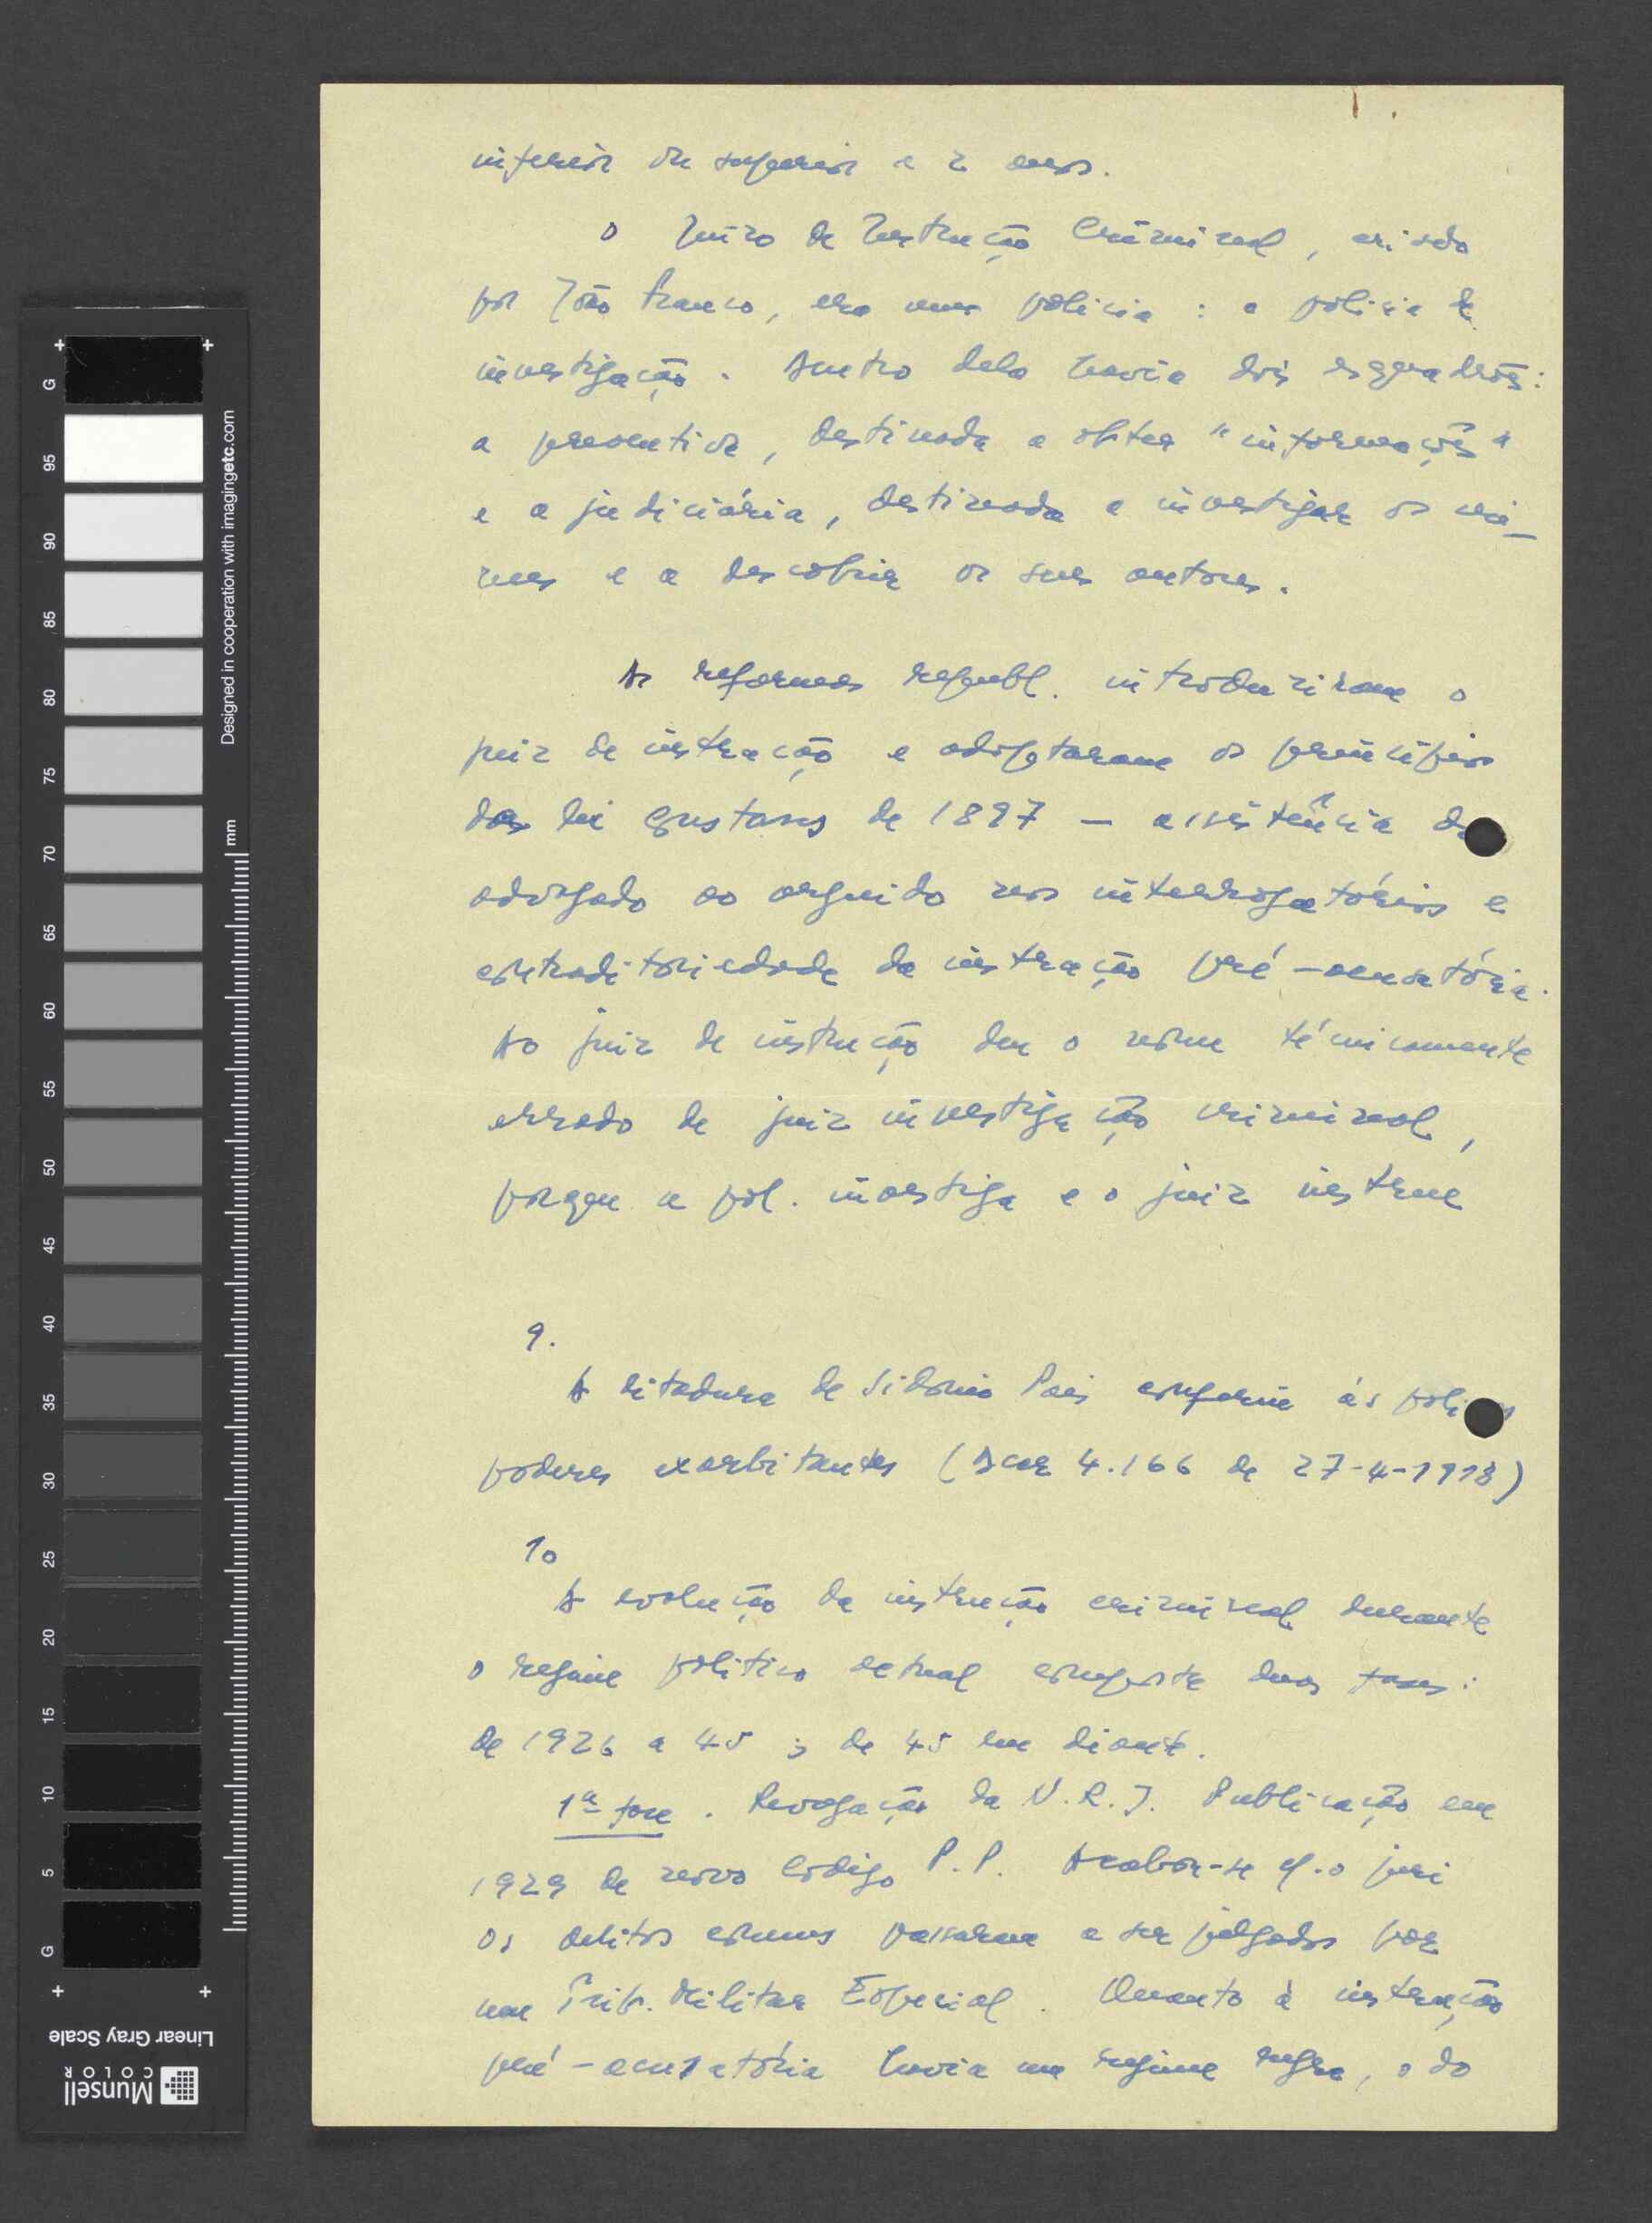 inferior ou superior a 2 anos.
O Juízo de Instrução Criminal, criado
por João Franco, era uma polícia : a polícia de
investigação. Dentro dela havia dois esquadrões:
a preventiva, destinada a obter "informações"
e a judiciária, destinada a investigar os cri-
mes e a descobrir os seus autores.
As reformas republ. introduziram o
juiz de instrução e adoptaram os princípios
da lei Constans de 1897 – assistência de
advogado ao arguido nos interrogatórios e
contraditoriedade da instrução pré-acusatória.
Ao juiz de instrução deu o nome técnicamente
errado de juiz investigação criminal,
porque a pol. investiga e o juiz instrue
9.
A ditadura de Sidonio Pais conferiu às
poderes exorbitantes (Decr 4.166 de 27-4-1918)
10
A evolução da instrução criminal durante
o regime politico actual comporta duas fases:
de 1926 a 45 ; de 45 em diante.
1ª fase. Revogação da N.R.J. Publicação em
1929 de novo Código P.P. Acabou-se c/ o juri
os delitos comuns passaram a ser julgados por
um Trib. Militar Especial. Quanto à instrução
pré-acusatória havia um regime regra, o do
G
95
90
85
80
75
70
65
60
55
50
45
40
35
30
25
20
15
10
5
G
mm
Designed in cooperation with imagingetc.com
Linear Gray Scale
Munsell
COLOR